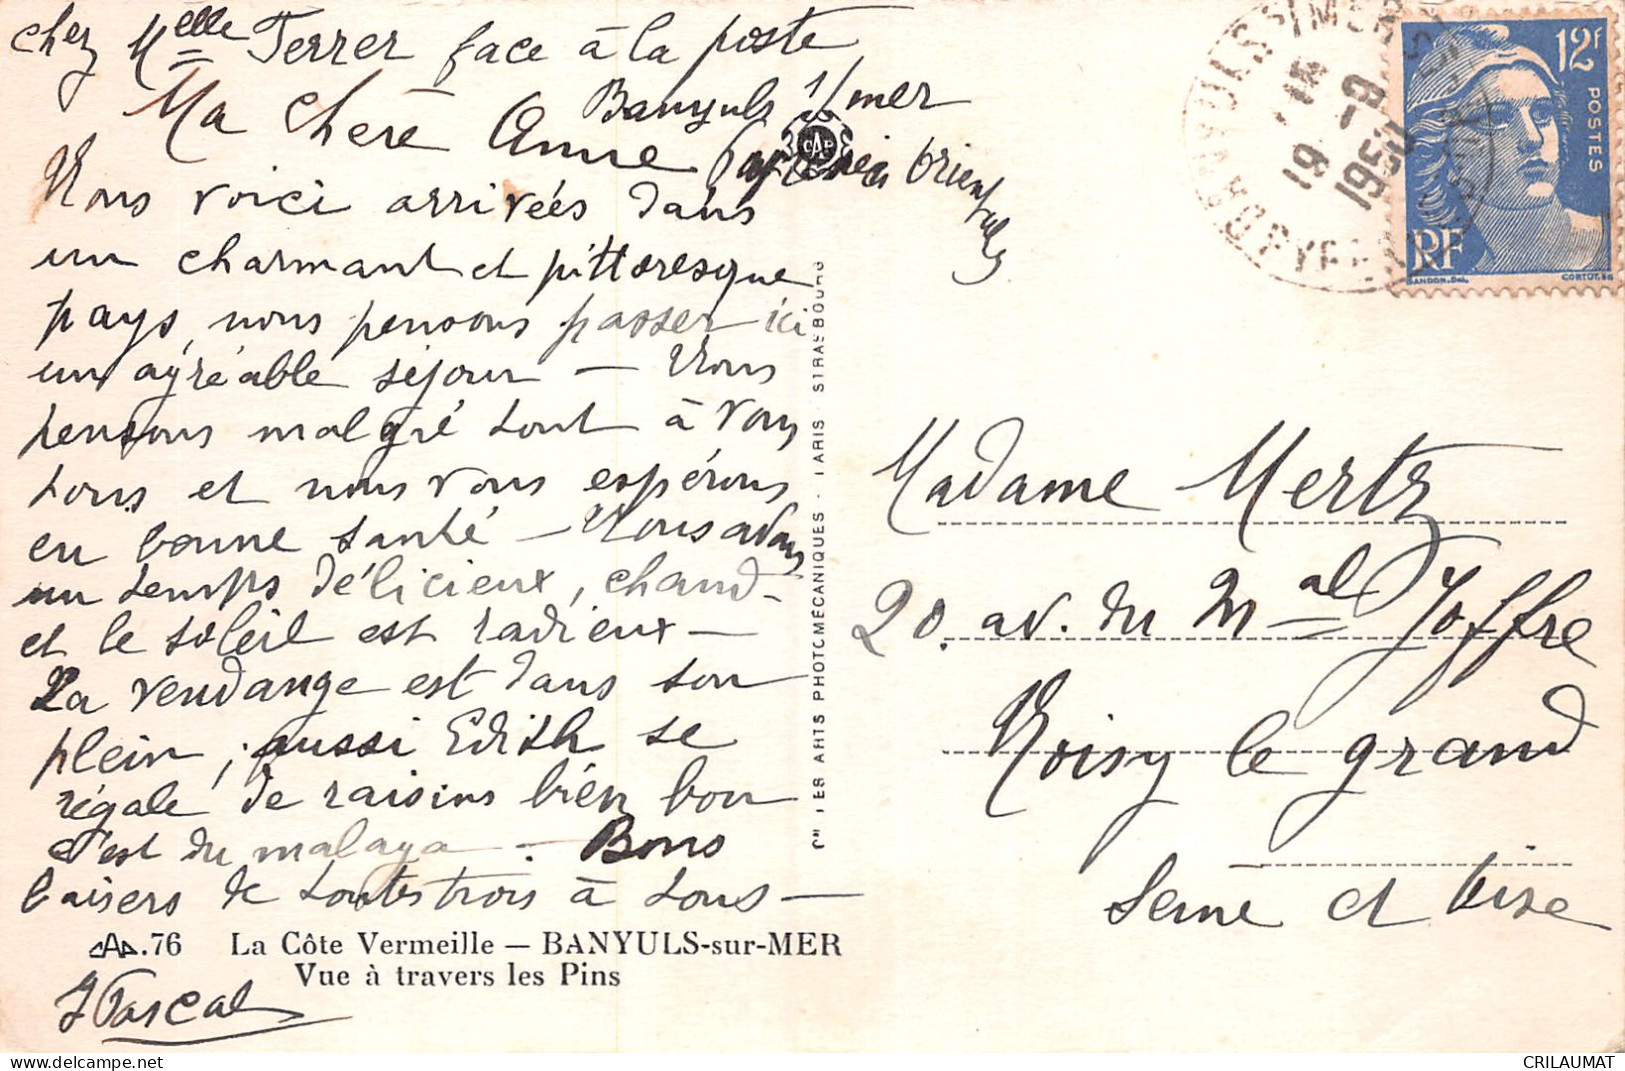 chez Melle Ferrer face à la poste
Banyuls s/mer
Pyrénées Orientales
Ma chère Anne
Nous voici arrivées dans
un charmant et pittoresque
pays, nous pensons passer ici
un agréable séjour — Nous
pensons malgré tout à vous
tous et nous vous espérons
en bonne santé — Nous avons
un temps délicieux, chaud
et le soleil est radieux —
La vendange est dans son
plein, aussi Edith se
régale de raisins bien bon
c'est du malaga — Bons
baisers de toutes trois à tous —
CAP.76 La Côte Vermeille — BANYULS-sur-MER
Vue à travers les Pins
J Pascal
CAP
Cie LES ARTS PHOTOMÉCANIQUES · PARIS · STRASBOURG
BANYULS S/MER
15 H
19 -9
1950
PYRÉNÉES
12F
POSTES
RF
GANDON.DEL.
CORTOT.SC
Madame Mertz
20. av. du Mal Joffre
Noisy le grand
Seine et Oise
Copyright © delcampe.net
CRILAUMAT